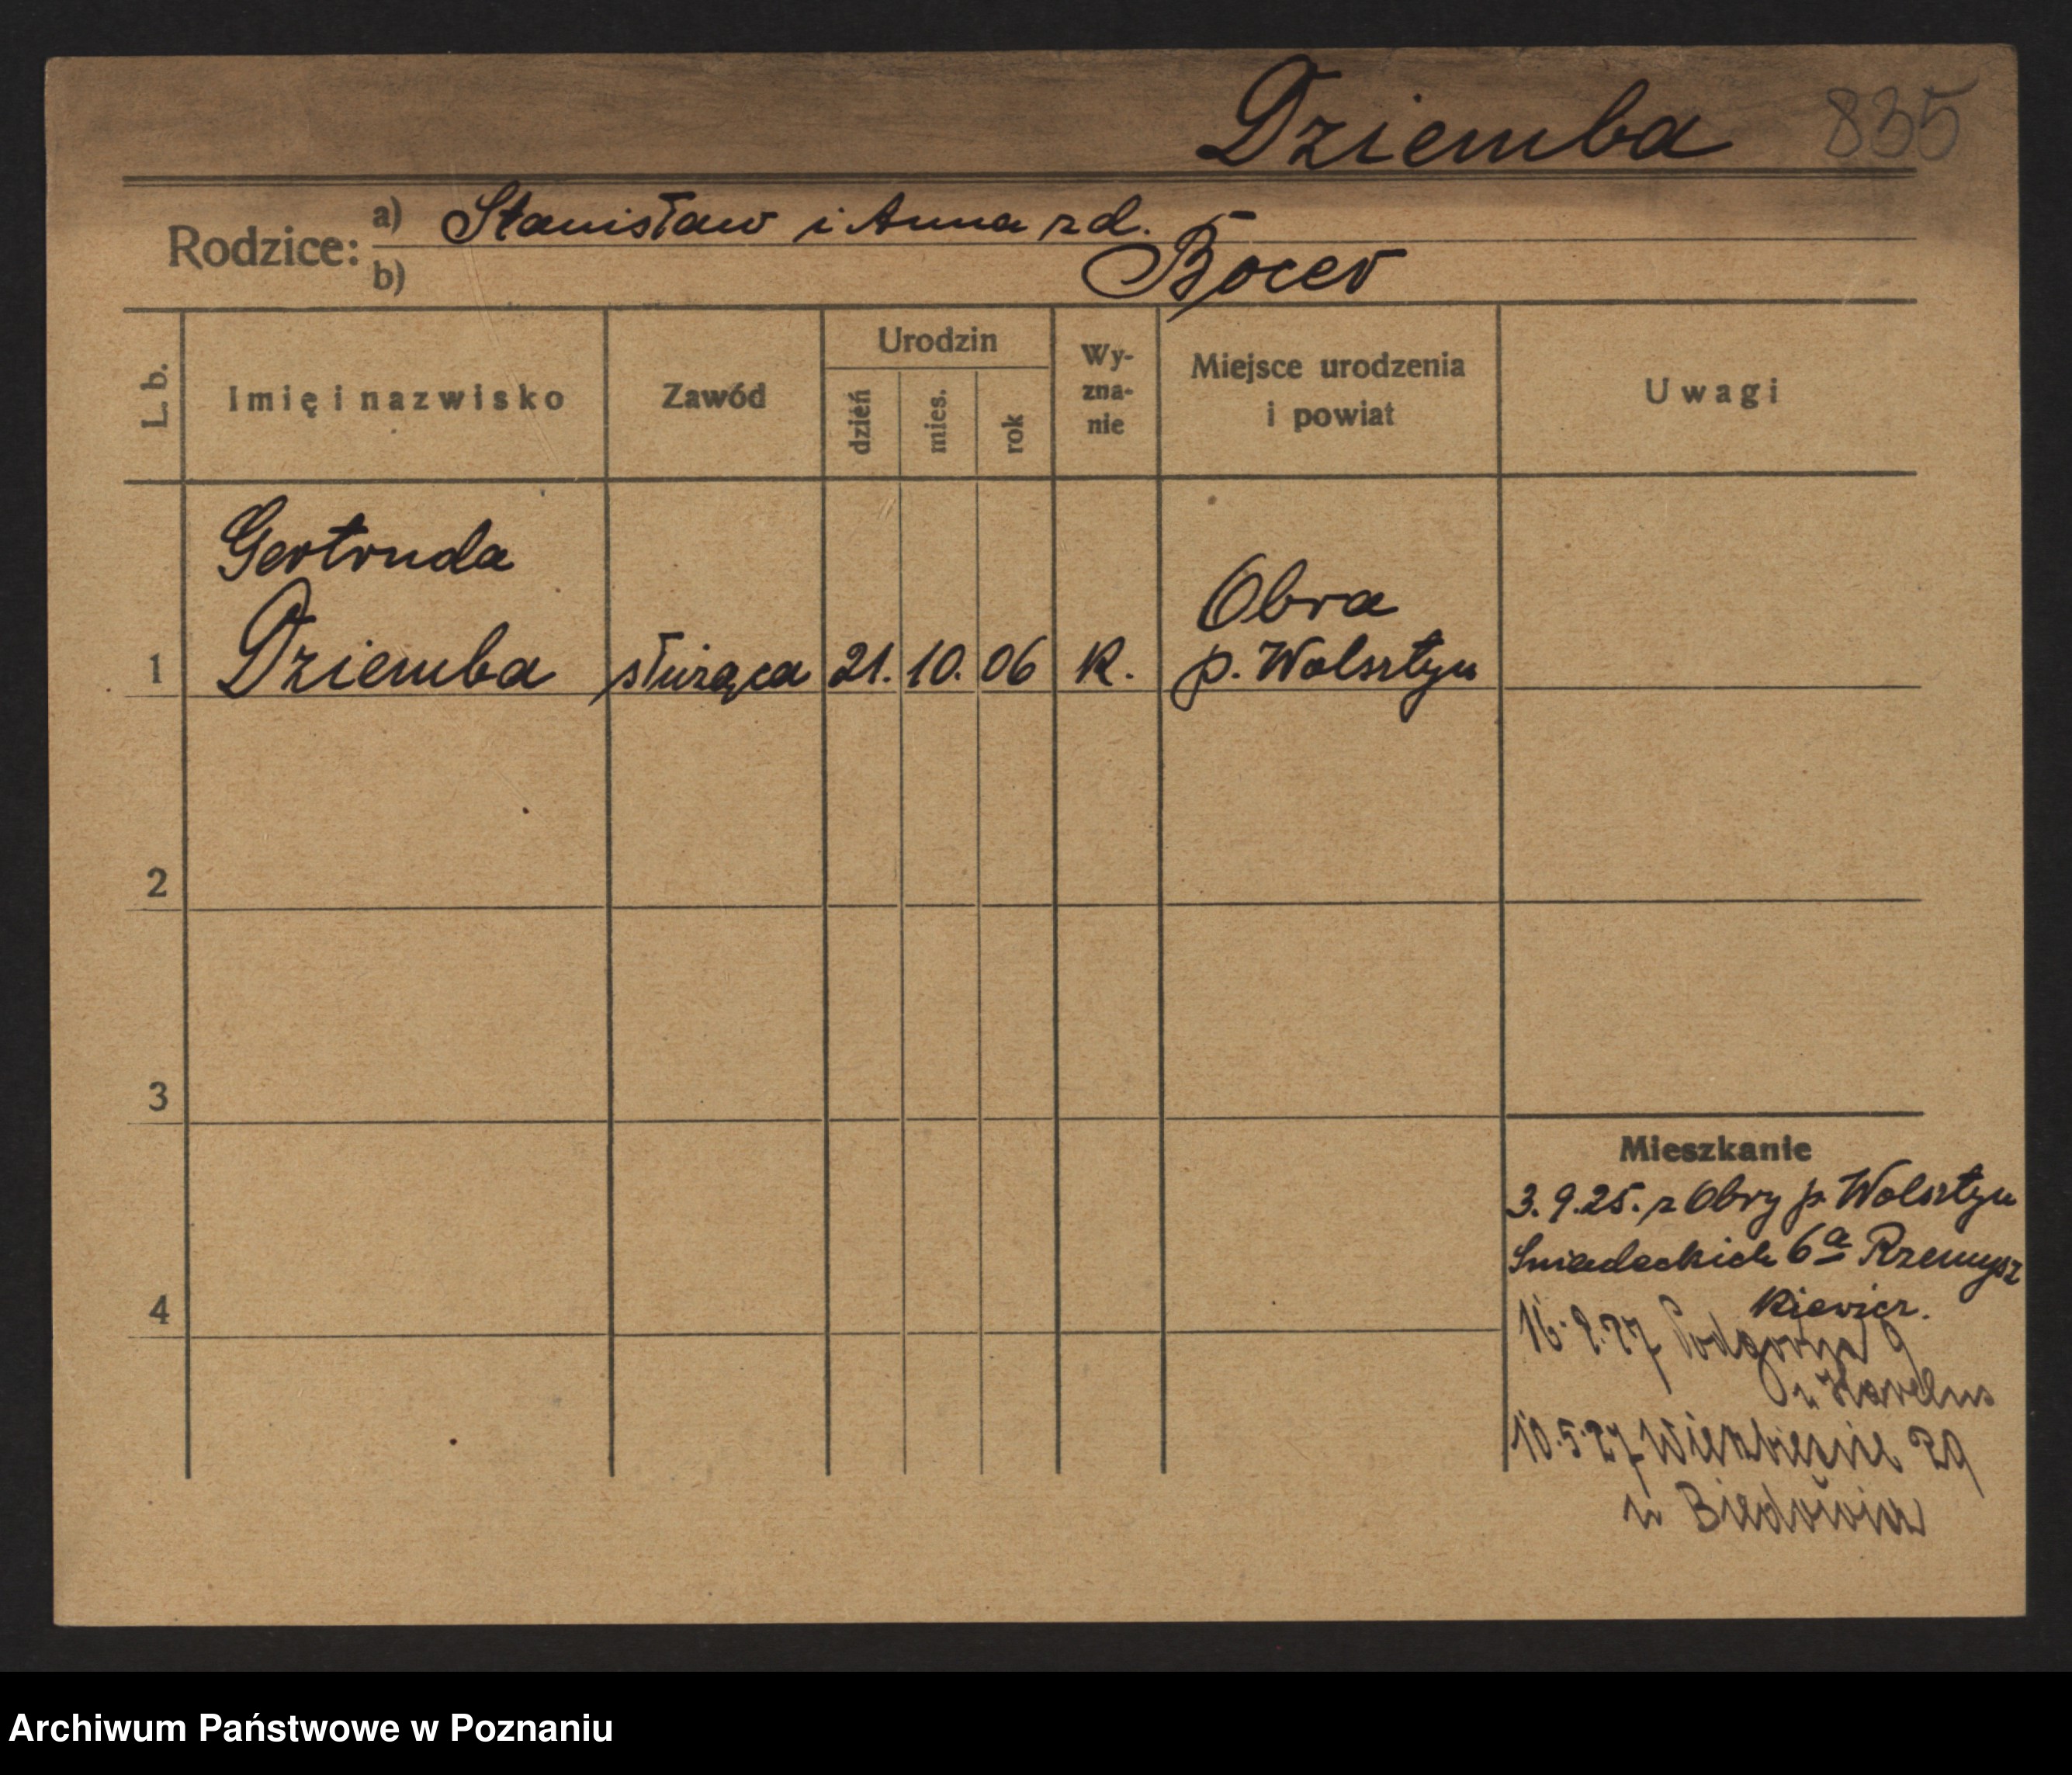 Dziemba 835
Rodzice: a) Stanisław i Anna zd.
b) Bocer
L. b.
Imię i nazwisko
Zawód
Urodzin
dzień
mies.
rok
Wy-
zna-
nie
Miejsce urodzenia
i powiat
Uwagi
Gertruda
Obra
1 Dziemba służąca 21. 10. 06 K. p. Wolsztyn
2
3
4
Mieszkanie
3.9.25. z Obry p. Wolsztyn
Sniadeckich 6a Rzemysz
kiewicz.
Podgorna 9
10.5.27 29
u
Archiwum Państwowe w Poznaniu